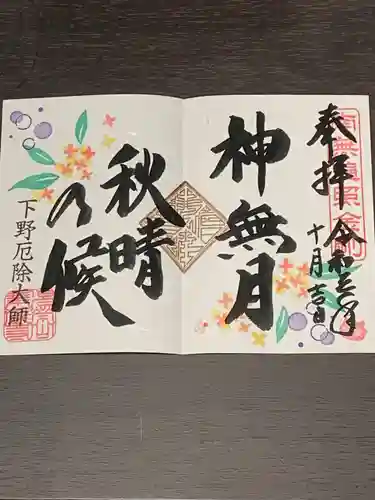 奉拝
令和三年
十月吉日
神無月
秋晴
の候
下野厄除大師